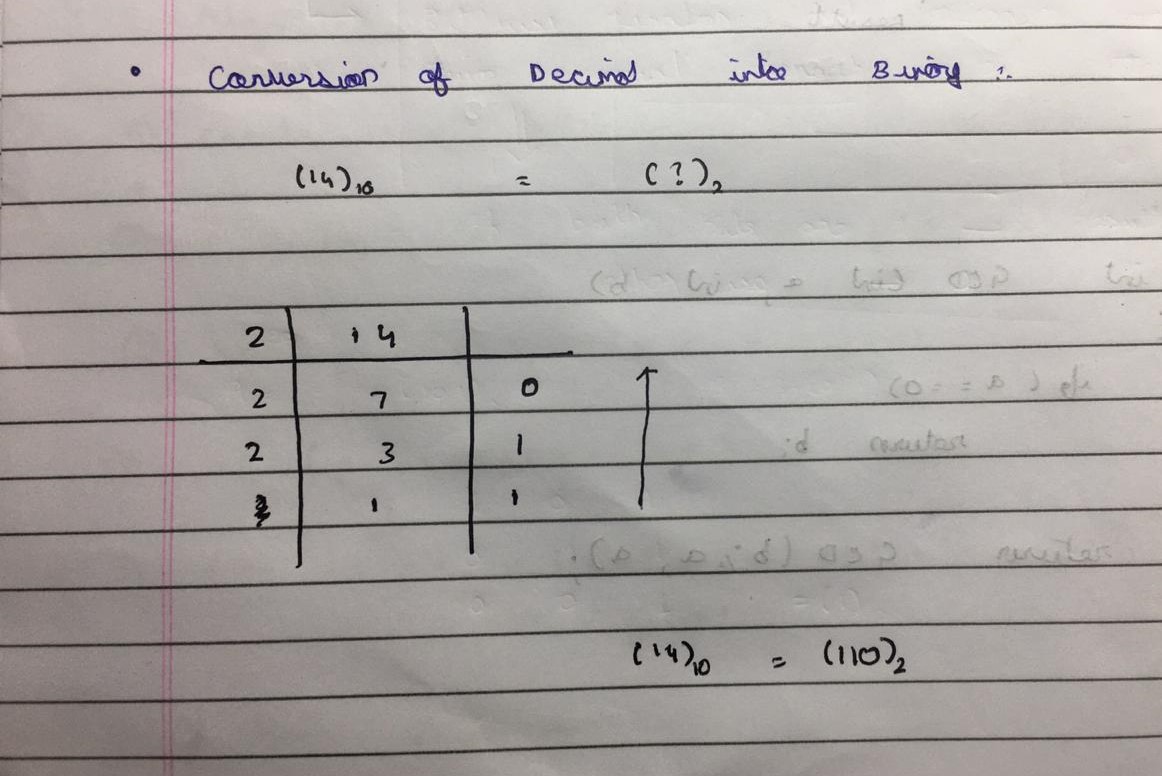 • Conversion of Decimal into Binary :-
(14)₁₀ = (?)₂
2 | 14 |
2 | 7 | 0
2 | 3 | 1
1 | 1
(14)₁₀ = (110)₂